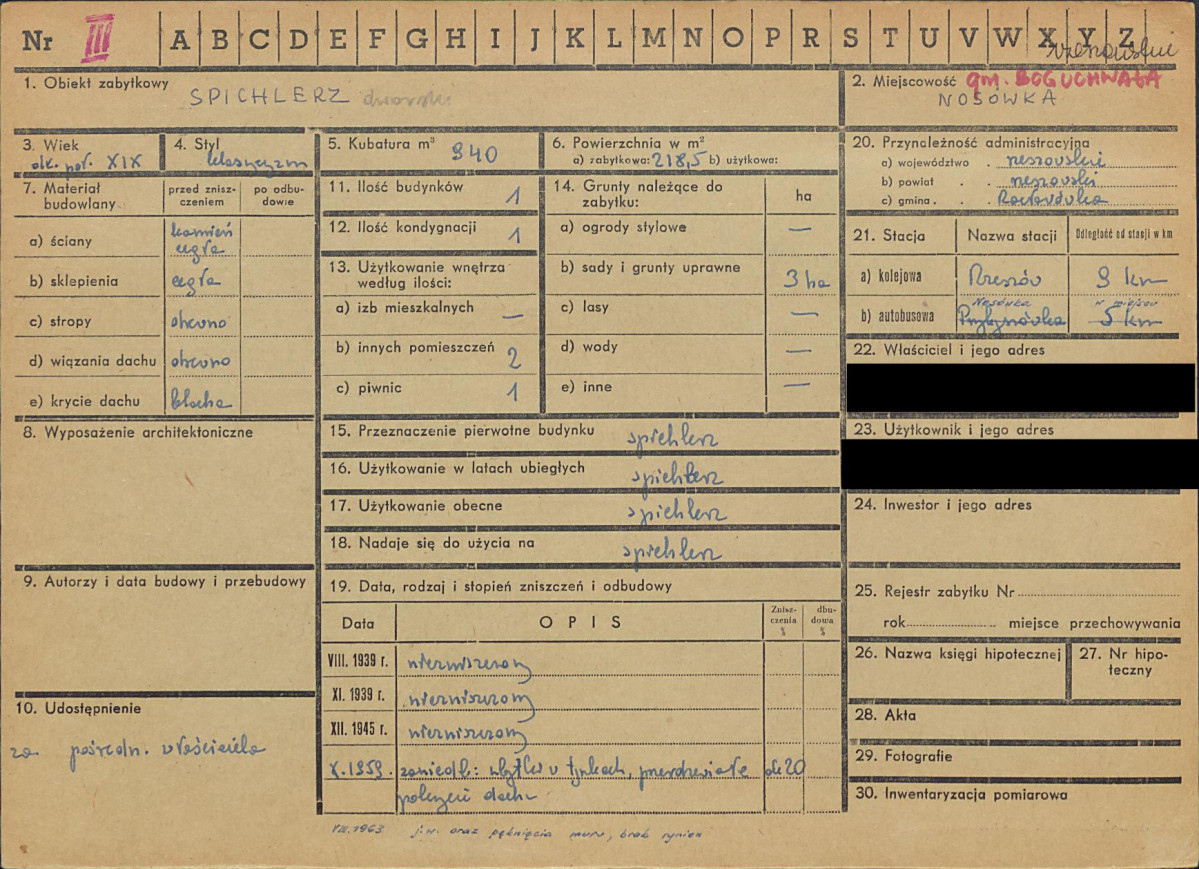 Nr III A B C D E F G H I J K L M N O P R S T U V W X Y Z
rzeszowskie
1. Obiekt zabytkowy
SPICHLERZ dworski
2. Miejscowość gm. BOGUCHWAŁA
NOSÓWKA
3. Wiek
ok. poł. XIX
4. Styl
klasycyzm
5. Kubatura m³ 940
6. Powierzchnia w m²
a) zabytkowa: 218,5 b) użytkowa:
7. Materiał budowlany
przed zniszczeniem
po odbudowie
a) ściany kamień cegła
b) sklepienia cegła
c) stropy drewno
d) wiązania dachu drewno
e) krycie dachu blacha
8. Wyposażenie architektoniczne
9. Autorzy i data budowy i przebudowy
10. Udostępnienie
za pośredn. właściciela
11. Ilość budynków 1
12. Ilość kondygnacji 1
13. Użytkowanie wnętrza
według ilości:
a) izb mieszkalnych —
b) innych pomieszczeń 2
c) piwnic 1
14. Grunty należące do
zabytku: ha
a) ogrody stylowe —
b) sady i grunty uprawne 3 ha
c) lasy —
d) wody —
e) inne —
15. Przeznaczenie pierwotne budynku spichlerz
16. Użytkowanie w latach ubiegłych spichlerz
17. Użytkowanie obecne spichlerz
18. Nadaje się do użycia na spichlerz
19. Data, rodzaj i stopień zniszczeń i odbudowy
Data OPIS Zniszczenia % dbudowa %
VIII. 1939 r. niezniszczony
XI. 1939 r. niezniszczony
XII. 1945 r. niezniszczony
X.1959. zaniedb: ubytki w tynkach, przerdzewiałe ok 20
pokrycie dachu
VIII.1963 j.w. oraz pęknięcia muru, brak rynien
20. Przynależność administracyjna
a) województwo . rzeszowskie
b) powiat . . rzeszowski
c) gmina . . . Racławówka
21. Stacja Nazwa stacji Odległość od stacji w km
a) kolejowa Rzeszów 9 km
Nosówka w miejscu
b) autobusowa Przybyszówka 5 km
22. Właściciel i jego adres
23. Użytkownik i jego adres
24. Inwestor i jego adres
25. Rejestr zabytku Nr
rok miejsce przechowywania
26. Nazwa księgi hipotecznej
27. Nr hipoteczny
28. Akta
29. Fotografie
30. Inwentaryzacja pomiarowa